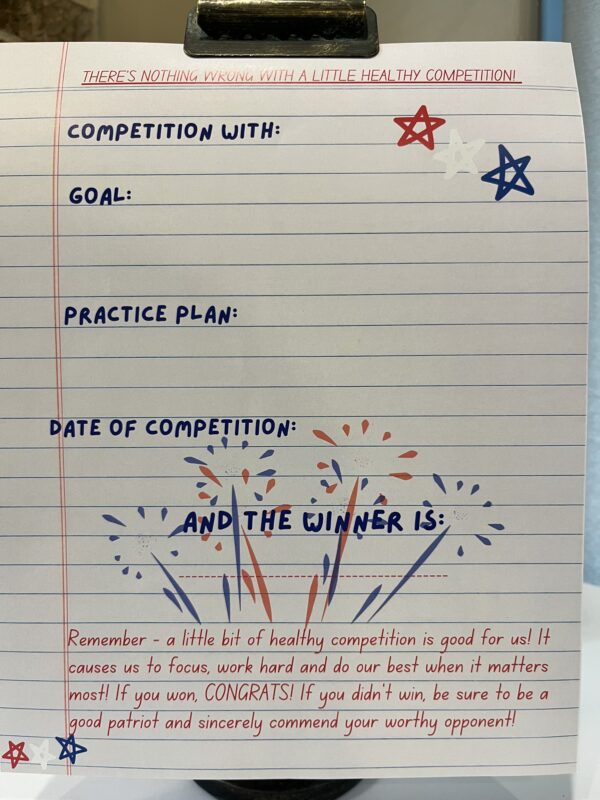 THERE'S NOTHING WRONG WITH A LITTLE HEALTHY COMPETITION!
COMPETITION WITH:
GOAL:
PRACTICE PLAN:
DATE OF COMPETITION:
AND THE WINNER IS:
Remember - a little bit of healthy competition is good for us! It
causes us to focus, work hard and do our best when it matters
most! If you won, CONGRATS! If you didn't win, be sure to be a
good patriot and sincerely commend your worthy opponent!